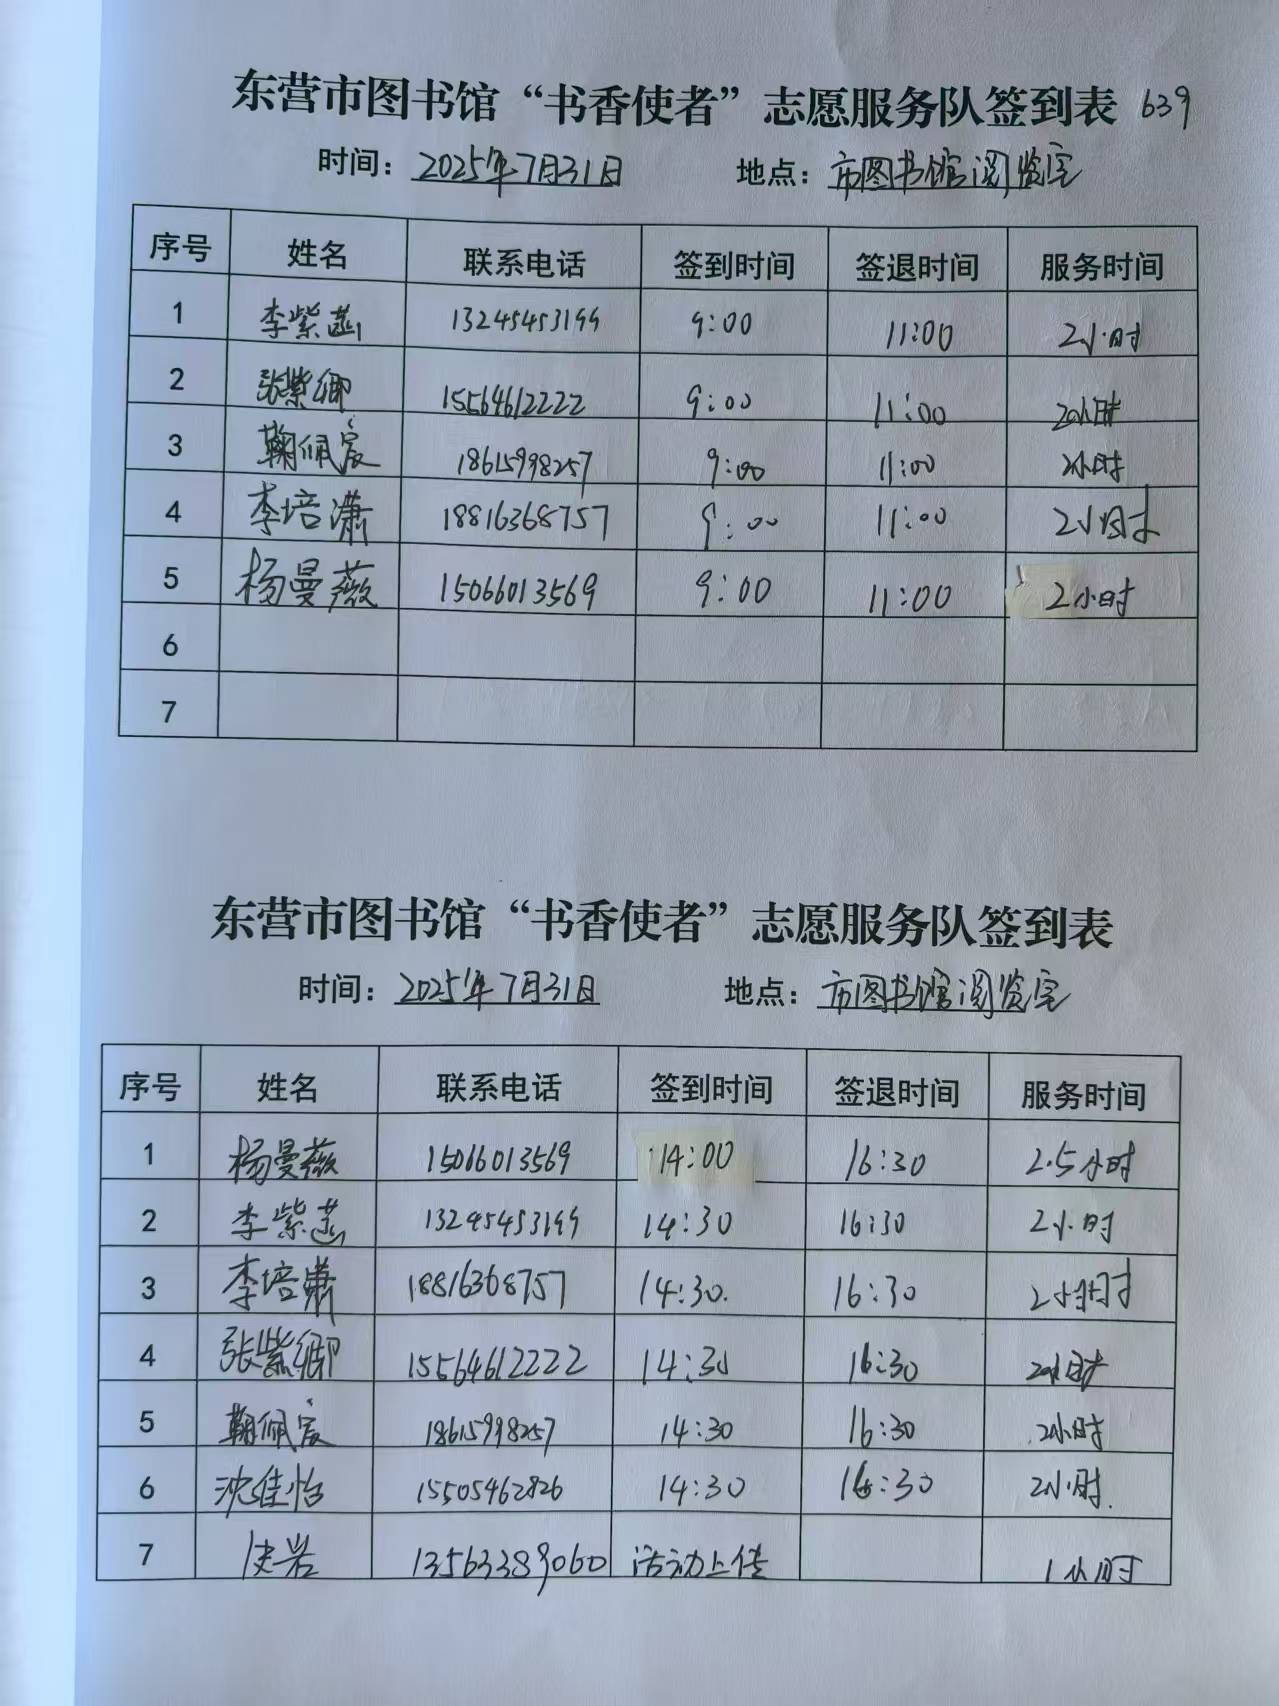 东营市图书馆“书香使者”志愿服务队签到表 639
时间：2025年7月31日 地点：市图书馆阅览室
序号 姓名 联系电话 签到时间 签退时间 服务时间
1 李紫菡 13245453199 9:00 11:00 2小时
2 张紫卿 15564612222 9:00 11:00 2小时
3 鞠佩宸 18615998257 9:00 11:00 2小时
4 李培潇 18816368757 9:00 11:00 2小时
5 杨曼薇 15066013569 9:00 11:00 2小时
6
7
东营市图书馆“书香使者”志愿服务队签到表
时间：2025年7月31日 地点：市图书馆阅览室
序号 姓名 联系电话 签到时间 签退时间 服务时间
1 杨曼薇 15066013569 14:00 16:30 2.5小时
2 李紫菡 13245453199 14:30 16:30 2小时
3 李培潇 18816368757 14:30. 16:30 2小时
4 张紫卿 15564612222 14:30 16:30 2小时
5 鞠佩宸 18615998257 14:30 16:30 2小时
6 沈佳怡 15505462826 14:30 16:30 2小时.
7 13563389060 活动上传 1小时